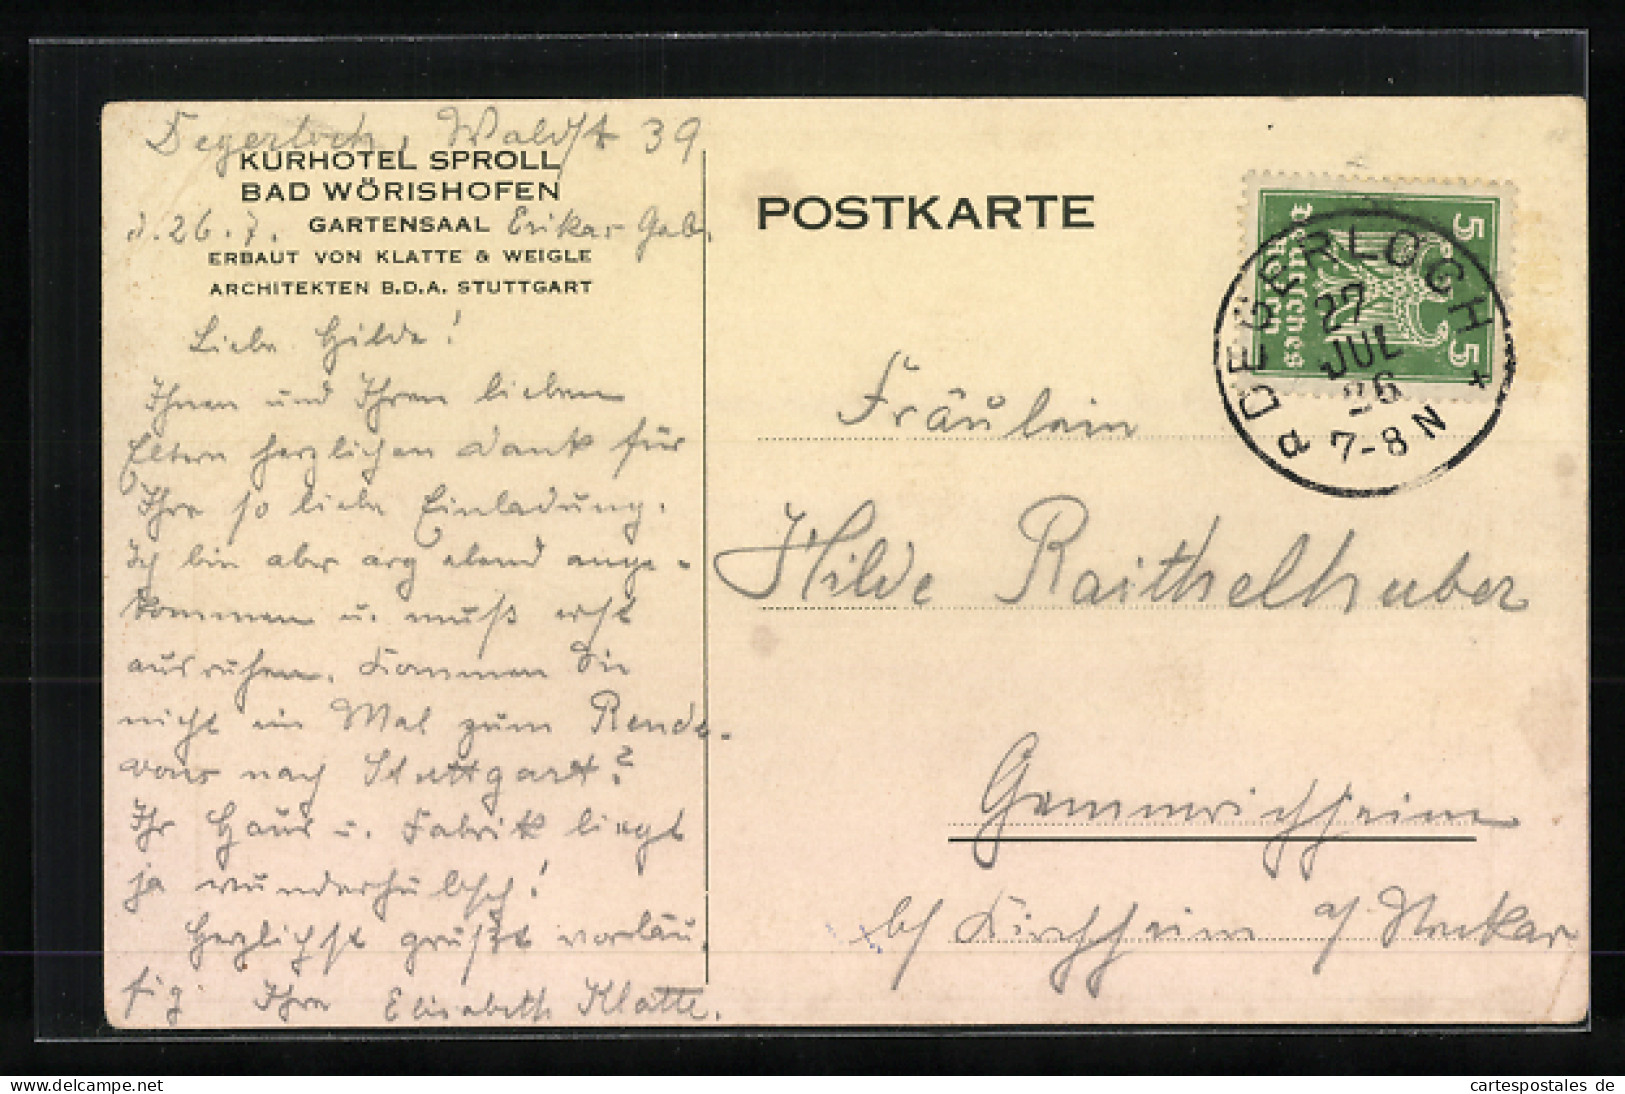 Degerloch, Waldst 39
KURHOTEL SPROLL
BAD WÖRISHOFEN
d. 26. 7. GARTENSAAL
ERBAUT VON KLATTE & WEIGLE
ARCHITEKTEN B.D.A. STUTTGART
Liebe Hilde!
Ihnen und Ihren lieben
Eltern herzlichen Dank für
Ihre so liebe Einladung.
Ich bin aber arg elend ange-
kommen u. muß erst
ausruhen. Kommen Sie
nicht ein Mal zum Rende-
vous nach Stuttgart?
Ihr Haus u. Fabrik liegt
ja wunderhübsch!
Herzlichst grüßt vorläu-
fig Ihre Elisabeth Klatte.
POSTKARTE
5 Deutsches Reich 5
DEGERLOCH
27
JUL
26
7-8 N
a
Fräulein
Hilde Raithelhuber
Gemmrigheim
b/ Kirchheim a/ Neckar
cartespostales.de